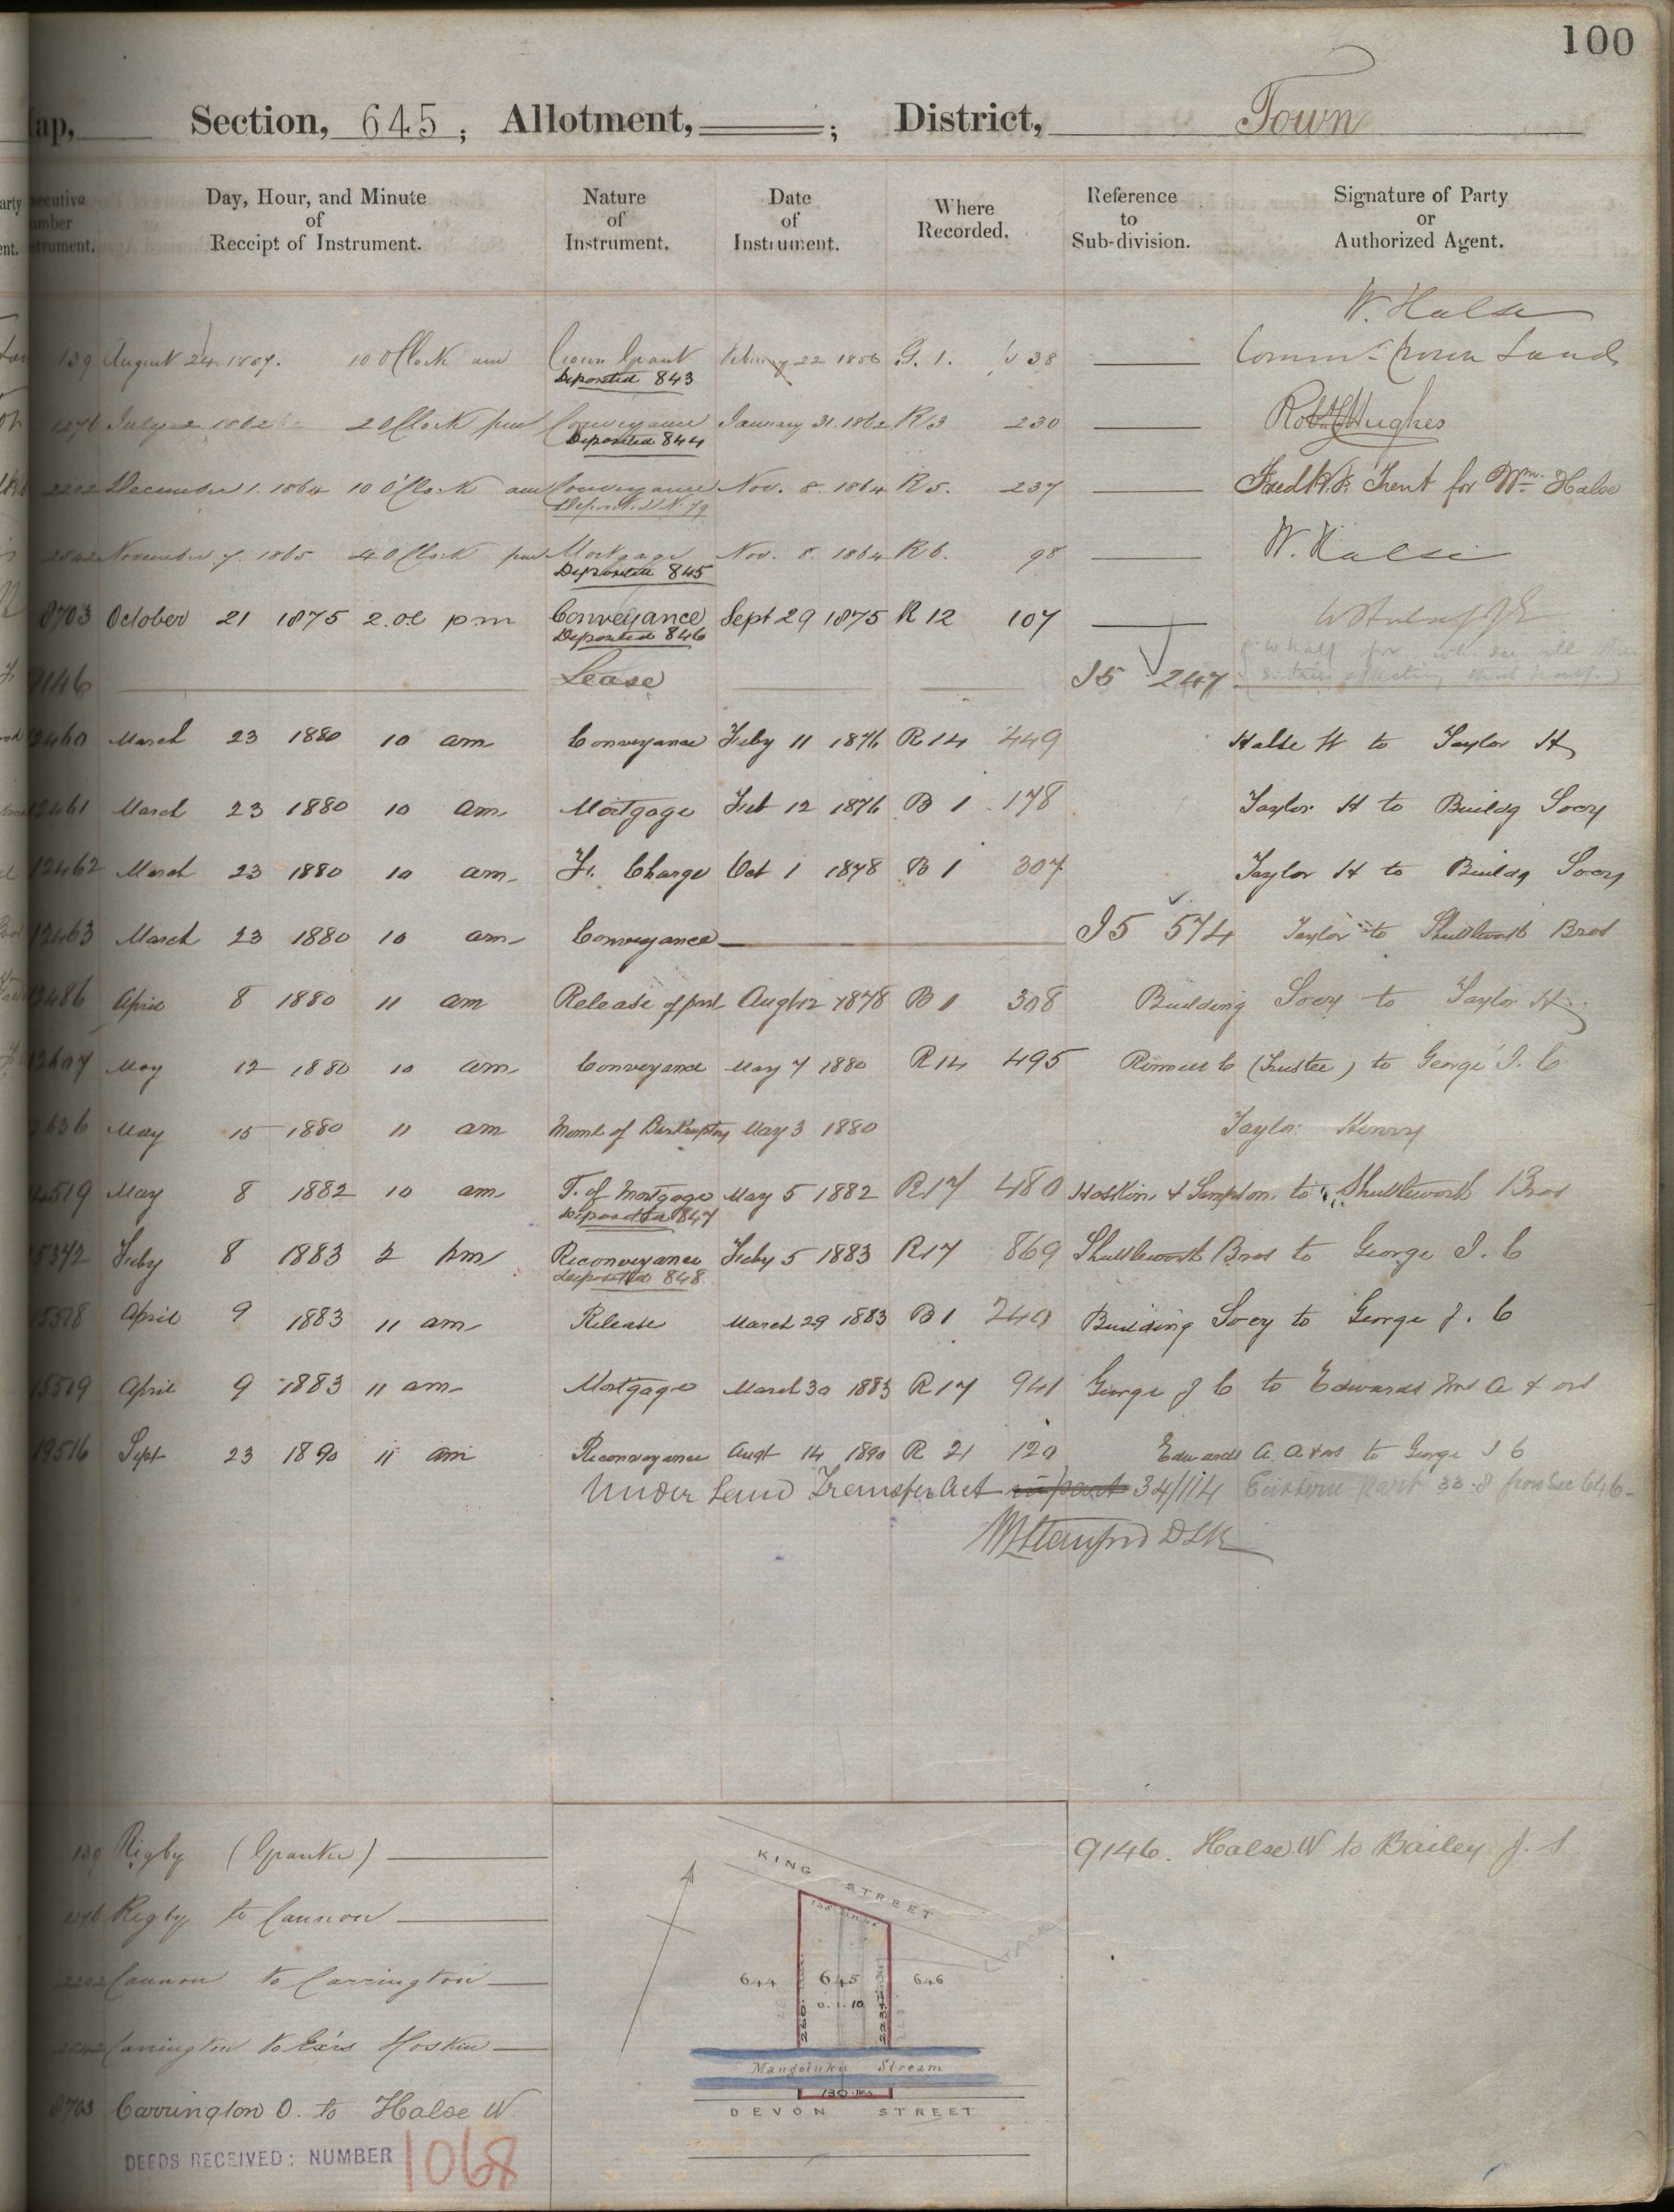 100
ap, Section, 645; Allotment, ; District, Town
Day, Hour, and Minute of Receipt of Instrument.
Nature of Instrument.
Date of Instrument.
Where Recorded.
Reference to Sub-division.
Signature of Party or Authorized Agent.
W. Halse
139 August 24. 1857. 10 OClock am Crown Grant February 22 1856 G. 1. 38 Commr Crown Lands
Deposited 843
1276 July 2 1862 2 OClock pm Conveyance January 31. 1862 R3 230 Robt Hughes
Deposited 844
2202 December 1. 1864 10 O'Clock am Conveyance Nov. 8. 1864 R5. 237 Fredk. Trent for Wm. Halse
2842 November 7. 1865 4 OClock pm Mortgage Nov. 8. 1864 R6. 98 W. Halse
Deposited 845
8703 October 21 1875 2. pm Conveyance Sept 29 1875 R12 107
Deposited 846
9146 Lease I5 247
12460 March 23 1880 10 am Conveyance Feby 11 1876 R14 449 Halse W to Taylor H
12461 March 23 1880 10 am Mortgage Feb 12 1876 B1 178 Taylor H to Buildg Socy
12462 March 23 1880 10 am Fr. Charge Oct 1 1878 B1 307 Taylor H to Buildg Socy
12463 March 23 1880 10 am Conveyance I5 574 Taylor to Shuttleworth Bros
12486 April 8 1880 11 am Release of part Augt 12 1878 B1 308 Building Socy to Taylor H
12607 May 12 1880 10 am Conveyance May 7 1880 R14 495 (Trustee) to George J. C
May 15 1880 11 am Meml of Bankruptcy May 3 1880 Taylor Henry
14519 May 8 1882 10 am T. of Mortgage May 5 1882 R17 480 Hoskin & Sampson to Shuttleworth Bros
Deposited 847
15372 Feby 8 1883 2 pm Reconveyance Feby 5 1883 R17 869 Shuttleworth Bros to George J. C
Deposited 848
15578 April 9 1883 11 am Release March 29 1883 B1 240 Building Socy to George J. C
15579 April 9 1883 11 am Mortgage March 30 1883 R17 941 George J C to Edwards A & ors
19516 Sept 23 1890 11 am Reconveyance Augt 14 1890 R 21 120 Edwards A. A & ors to George J C
Under Land Transfer Act in part 34/114 Eastern part 33.8 from Sec 646.
DLR
139 Rigby (Grantee)
1276 Rigby to Cannon
2202 Cannon to Carrington
2842 Carrington to Exrs Hoskin
8703 Carrington O. to Halse W.
DEEDS RECEIVED: NUMBER 1068
KING STREET
644 645 646
0.1.10
260
223
Mangotuku Stream
130 lks
DEVON STREET
9146. Halse W to Bailey J. S